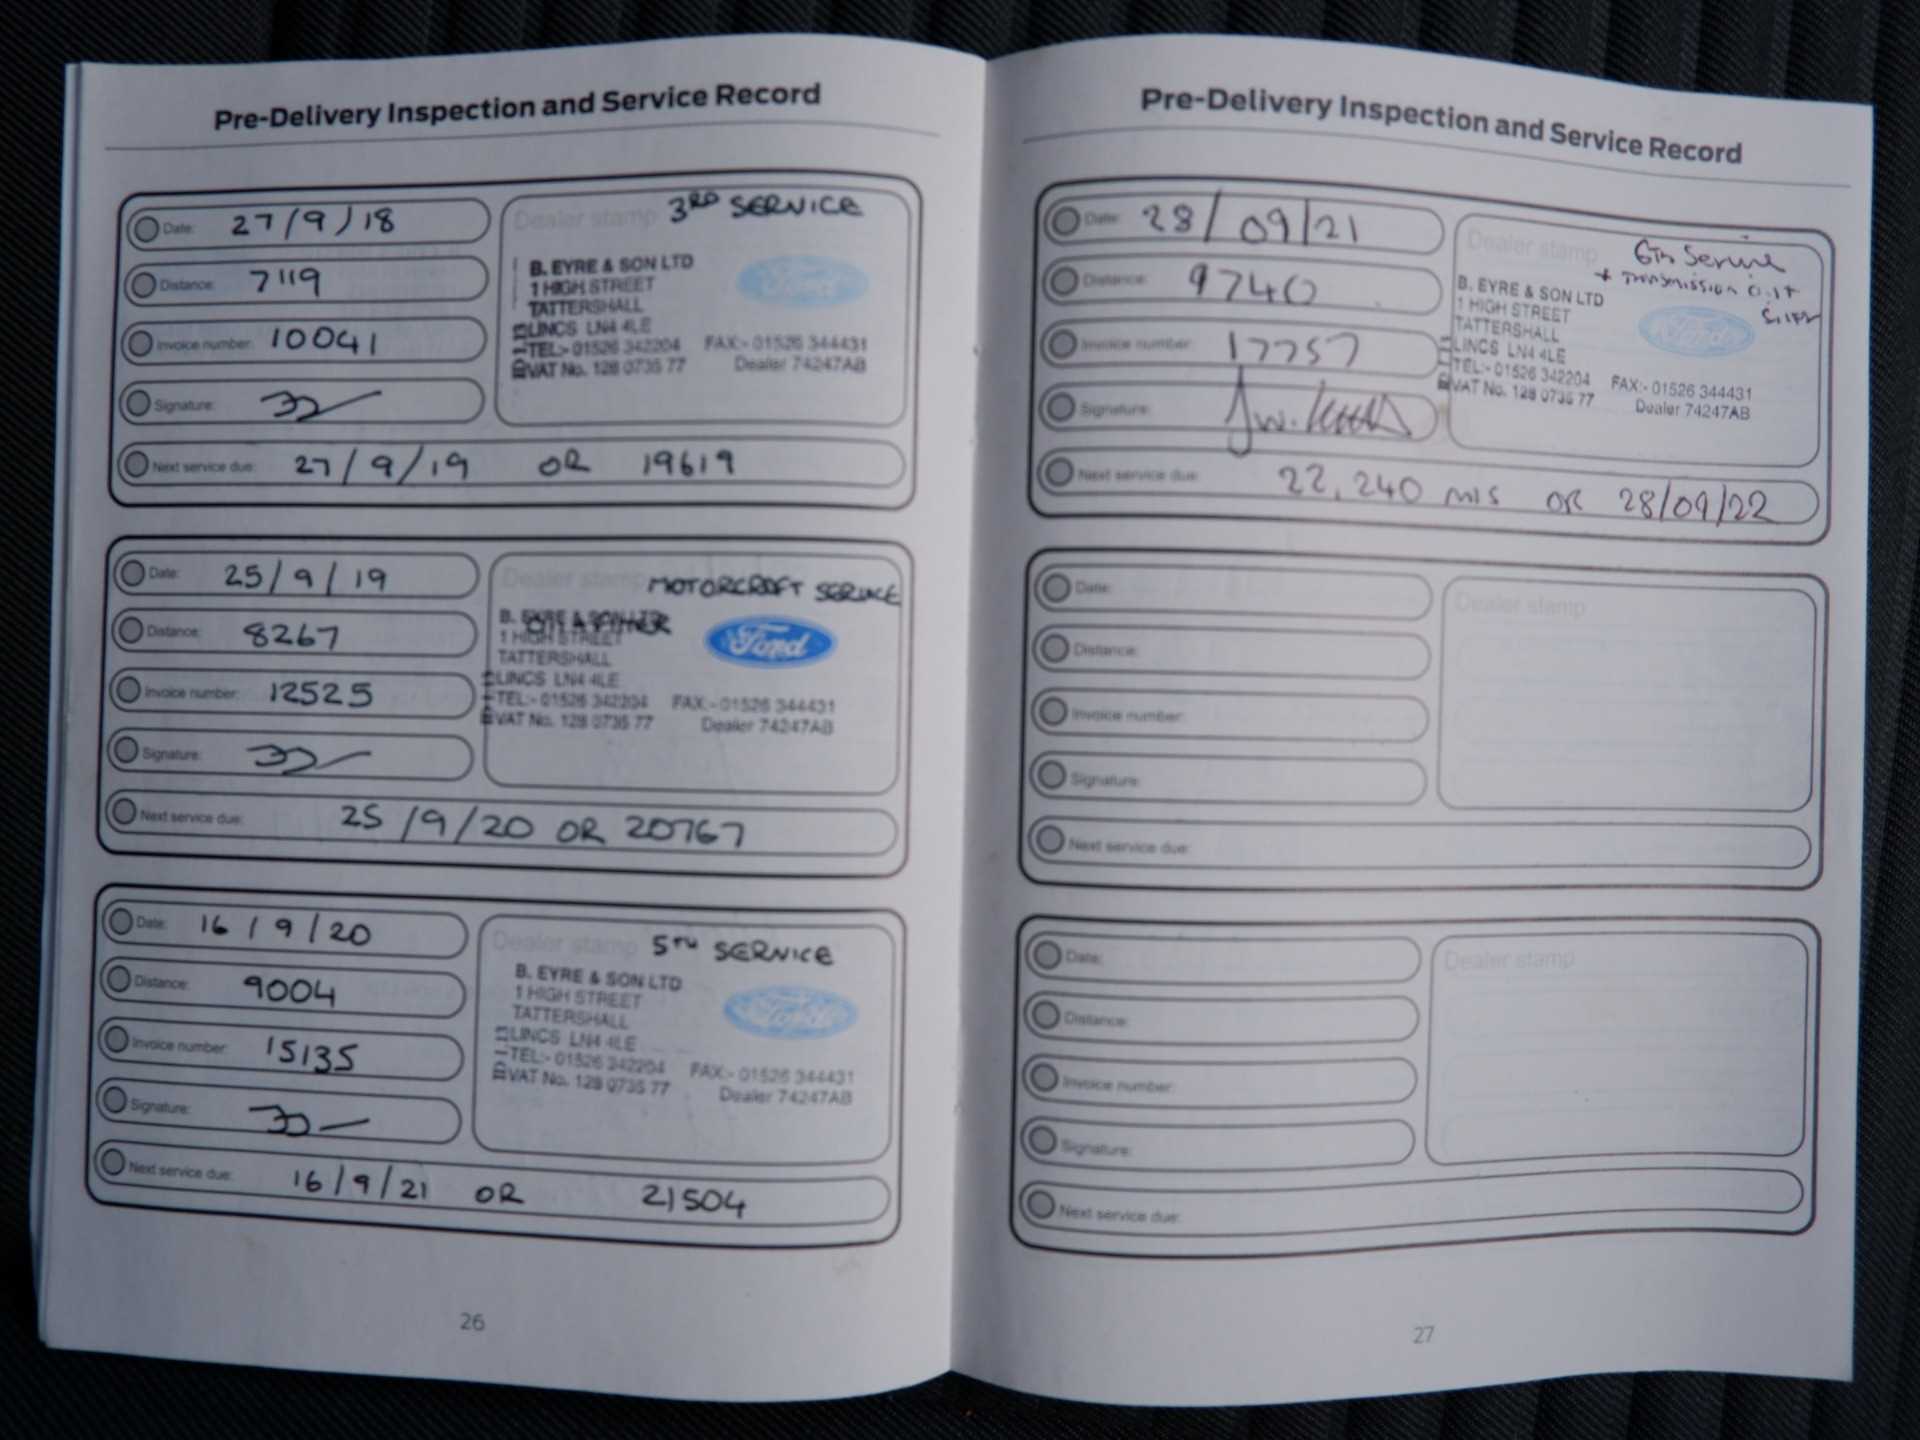 Pre-Delivery Inspection and Service Record
Date: 27/9/18
Distance: 7119
Invoice number: 10041
Signature:
Dealer stamp 3RD SERVICE
B. EYRE & SON LTD
1 HIGH STREET
TATTERSHALL
LINCS LN4 4LE
TEL:- 01526 342204 FAX:- 01526 344431
VAT No. 128 0735 77 Dealer 74247AB
Ford
Next service due: 27/9/19 OR 19619
Date: 25/9/19
Distance: 8267
Invoice number: 12525
Signature:
Dealer stamp MOTORCRAFT SERVICE
OIL & FILTER
B. EYRE & SON LTD
1 HIGH STREET
TATTERSHALL
LINCS LN4 4LE
TEL:- 01526 342204 FAX:- 01526 344431
VAT No. 128 0735 77 Dealer 74247AB
Ford
Next service due: 25/9/20 OR 20767
Date: 16/9/20
Distance: 9004
Invoice number: 15135
Signature:
Dealer stamp 5TH SERVICE
B. EYRE & SON LTD
1 HIGH STREET
TATTERSHALL
LINCS LN4 4LE
TEL:- 01526 342204 FAX:- 01526 344431
VAT No. 128 0735 77 Dealer 74247AB
Ford
Next service due: 16/9/21 OR 21504
26
Pre-Delivery Inspection and Service Record
Date: 28/09/21
Distance: 9740
Invoice number: 17757
Signature:
Dealer stamp 6TH Service
+ Transmission oil +
B. EYRE & SON LTD
1 HIGH STREET
TATTERSHALL
LINCS LN4 4LE
TEL:- 01526 342204 FAX:- 01526 344431
VAT No. 128 0735 77 Dealer 74247AB
Ford
Next service due: 22,240 mls OR 28/09/22
Date:
Distance:
Invoice number:
Signature:
Dealer stamp
Next service due:
Date:
Distance:
Invoice number:
Signature:
Dealer stamp
Next service due:
27